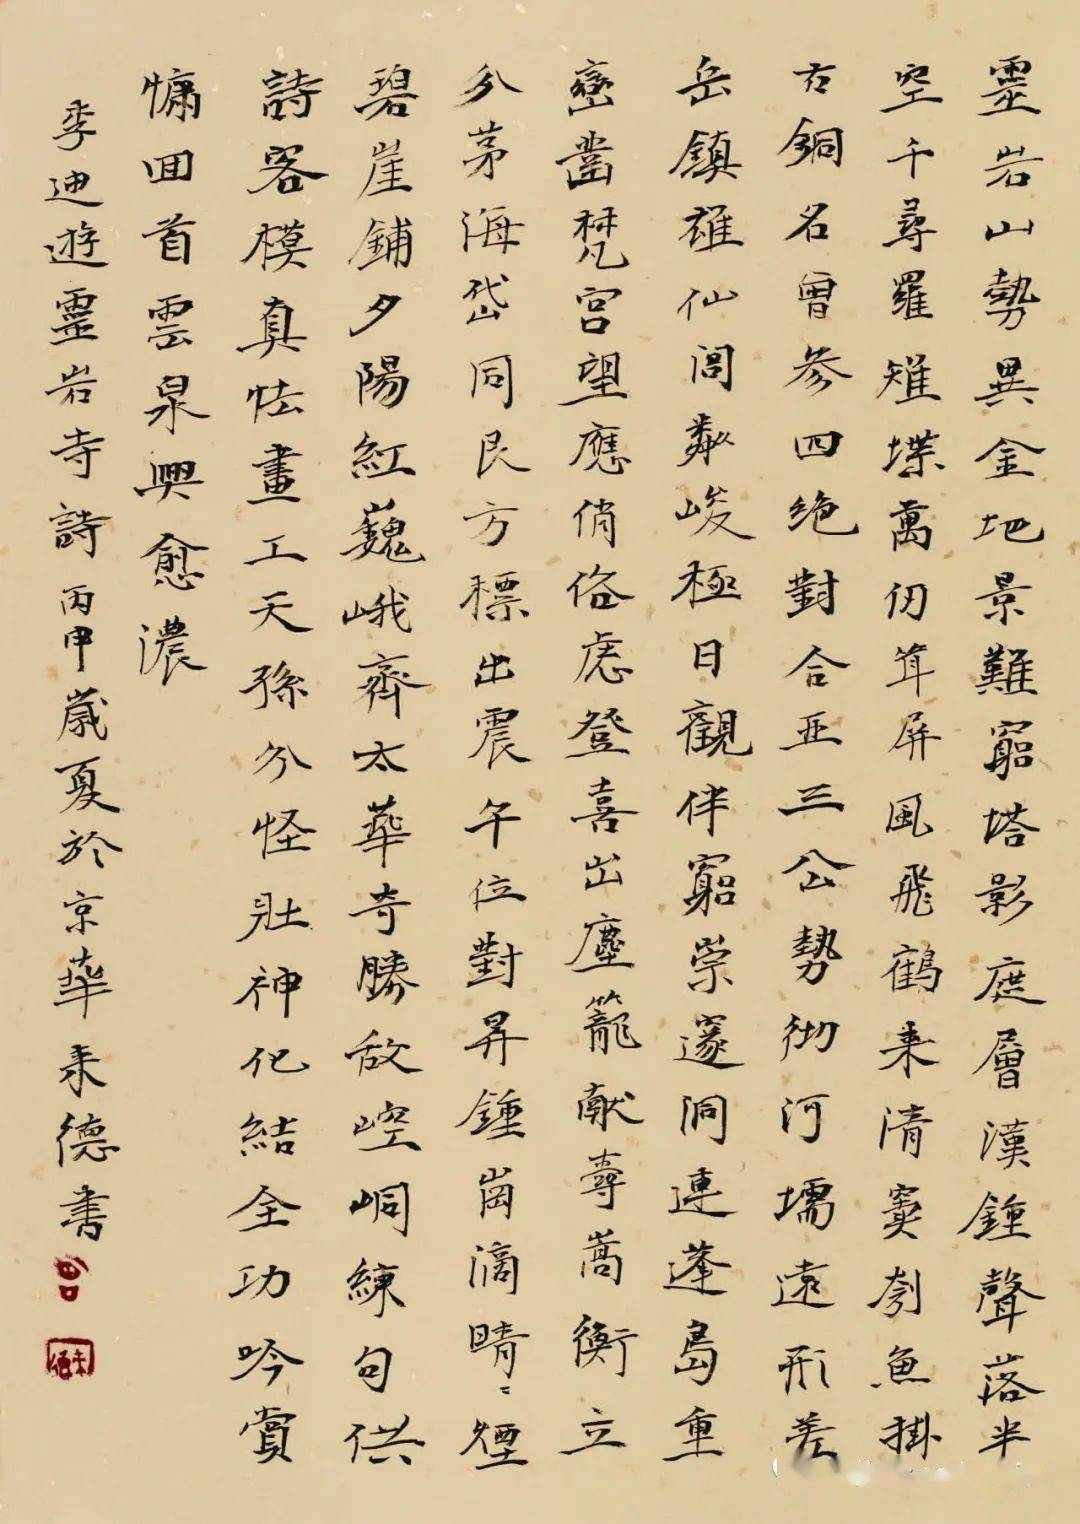 靈岩山勢異金地景難窮塔影庭層漢鍾聲落半
空千尋羅雉堞萬仞聳屏風飛鶴来清竇刳魚掛
古銅名曾參四绝對合亚三公勢彻河壖遠形差
岳鎮雄仙閭粼峻極日觀伴窮崇邃洞連蓬島重
巒凿梵宫望應俏俗慮登喜出塵籠献壽嵩衡立
分茅海岱同艮方標出震午位對昇鍾崗滴晴〻煙
碧崖鋪夕陽紅巍峨齊太華奇勝敌崆峒練句供
詩客模真怯畫工天孫分怪壯神化結全功吟賞
慵回首雲泉興愈濃
季迪遊靈岩寺詩丙申歲夏於京華耒德書